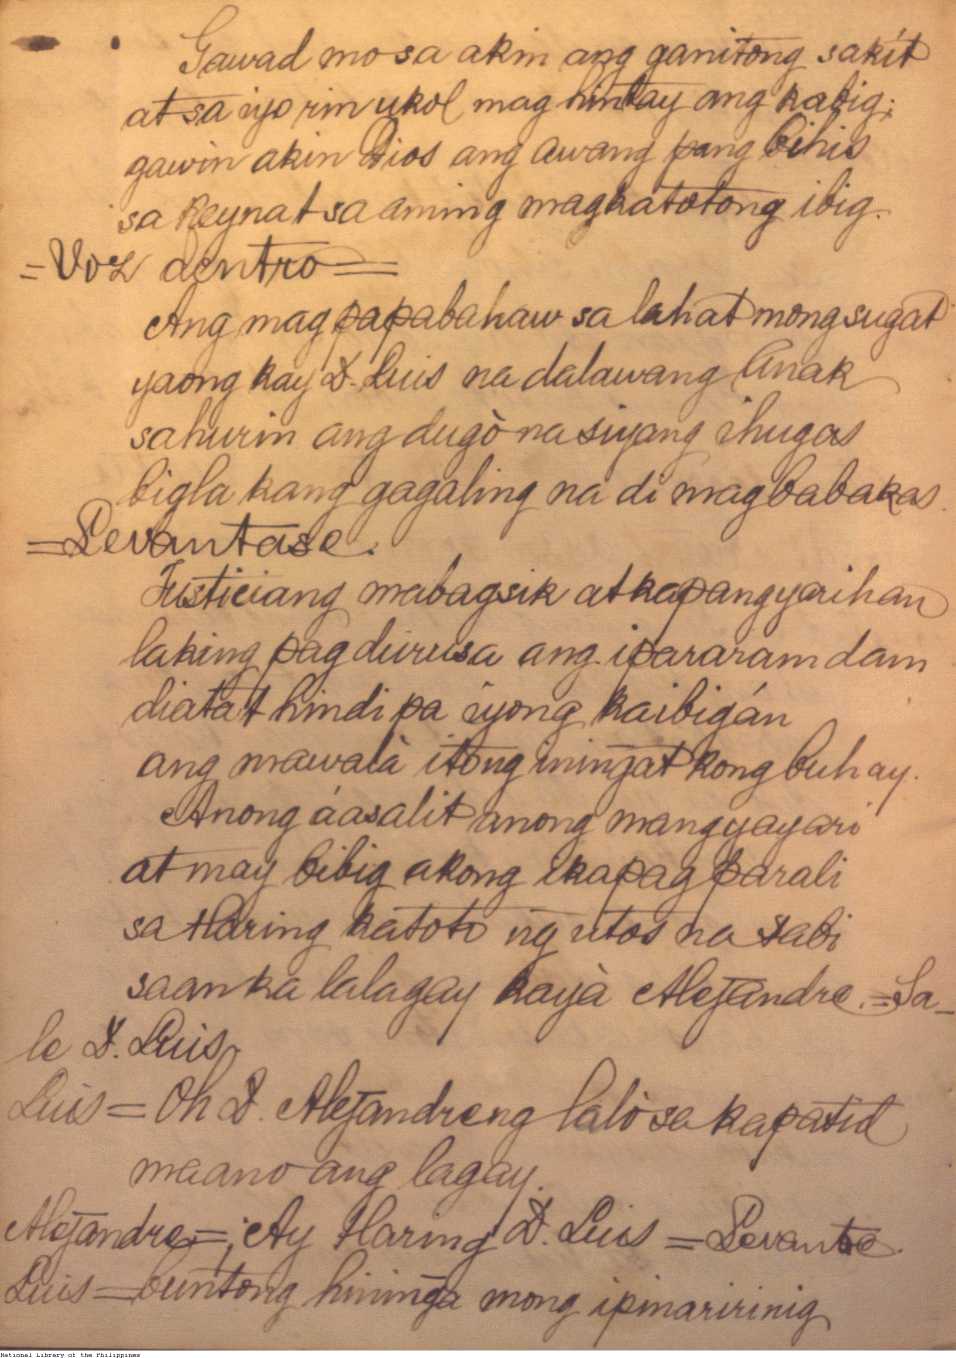 Gawad mo sa akin ang ganitong sakít
at sa iyo rin ukol mag hintay ang kabig;
gawin akin Dios ang awang pang bihis
sa Reynat sa aming magkatotong ibig.
= Voz dentro =
Ang mag papabahaw sa lahat mong sugat
yaong kay D. Luis na dalawang Anak
sahurin ang dugò na siyang ihugas
bigla kang gagaling na di magbabakas.
= Levantase.
Justiciang mabagsik at kapangyarihan
laking pag durusa ang ipararamdam
diatat hindi pa iyong kaibigán
ang mawalà itong iningat kong buhay.
Anong áasalit anong mangyayari
at may bibig akong ikapag parali
sa Haring katoto ng utos na sabi
saan ka lalagay kayà Alejandre. = Sa-
le D. Luis,
Luis = Oh D. Alejandreng lalò sa kapatid
maano ang lagay.
Alejandre = ¡Ay Haring D. Luis = Levante.
Luis = buntong hininga mong ipinaririnig
National Library of the Philippines